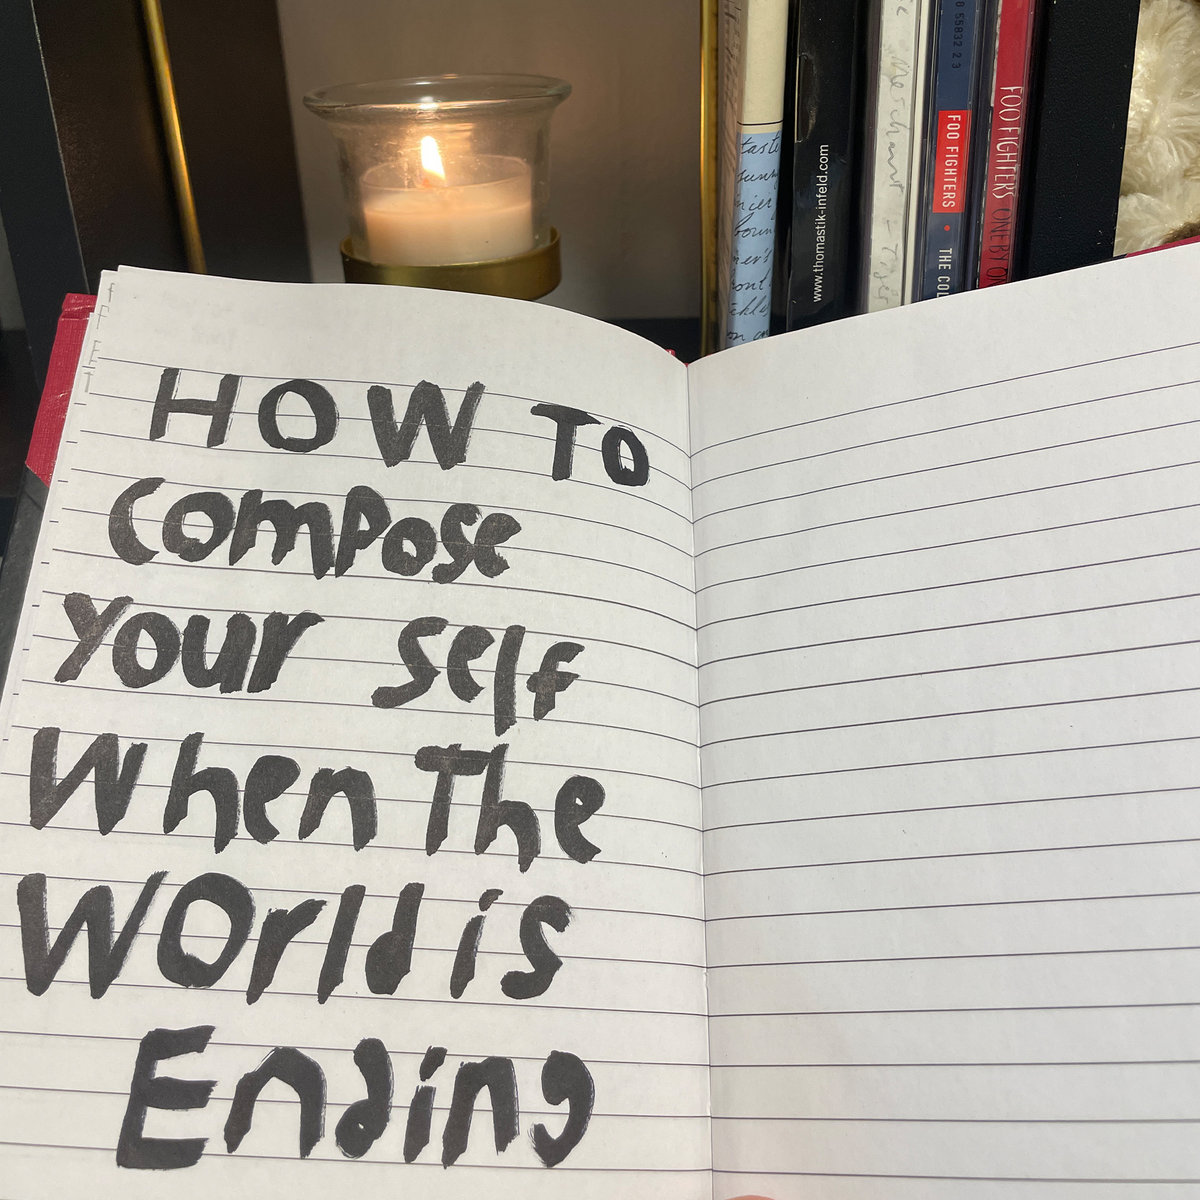 HOW TO
compose
your self
when The
World is
Ending
www.thomastik-infeld.com
FOO FIGHTERS • THE COL
FOO FIGHTERS ONE BY ON
55832 2 3